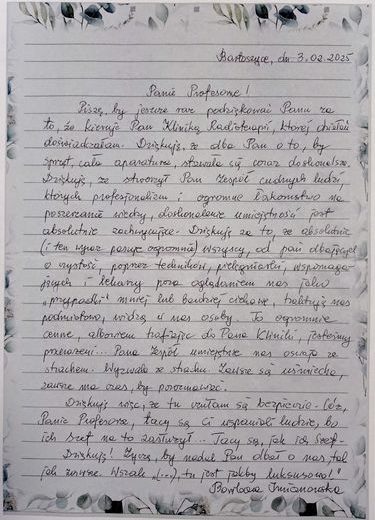 Bartoszyce, dn 3.02.2025
Panie Profesorze!
Piszę, by jeszcze raz podziękować Panu za
to, że kieruje Pan Kliniką Radioterapii, której działań
doświadczałam. Dziękuję, że dba Pan o to, by
sprzęt, cała aparatura, stawała się coraz doskonalsza.
Dziękuję, że stworzył Pan Zespół cudnych ludzi,
których profesjonalizm i ogromne łakomstwo na
poszerzanie wiedzy, doskonalenie umiejętności jest
absolutnie zachwycające. Dziękuję za to, że absolutnie
(i ten wyraz pasuje ogromnie) wszyscy, od pań dbających
o czystość, poprzez techników, pielęgniarki, wspomaga-
jących i lekarzy poza oglądaniem nas jako
"przypadki" mniej lub bardziej ciekawe, traktują nas
podmiotowo, widzą w nas osoby. To ogromnie
cenne, albowiem trafiając do Pana Kliniki, jesteśmy
przerażeni... Pana Zespół umiejętnie nas oswaja ze
strachem. Wyzwala ze strachu. Zawsze są uśmiechy,
zawsze ma czas, by porozmawiać.
Dziękuję więc, że tu czułam się bezpiecznie. Cóż,
Panie Profesorze, tacy są Ci wspaniali ludzie, bo
ich Szef na to zasłużył... Tacy są, jak ich Szef.
Dziękuję! Życzę, by nadal Pan dbał o nas tak
jak zawsze. Wszak "(...), tu jest jakby luksusowo!"